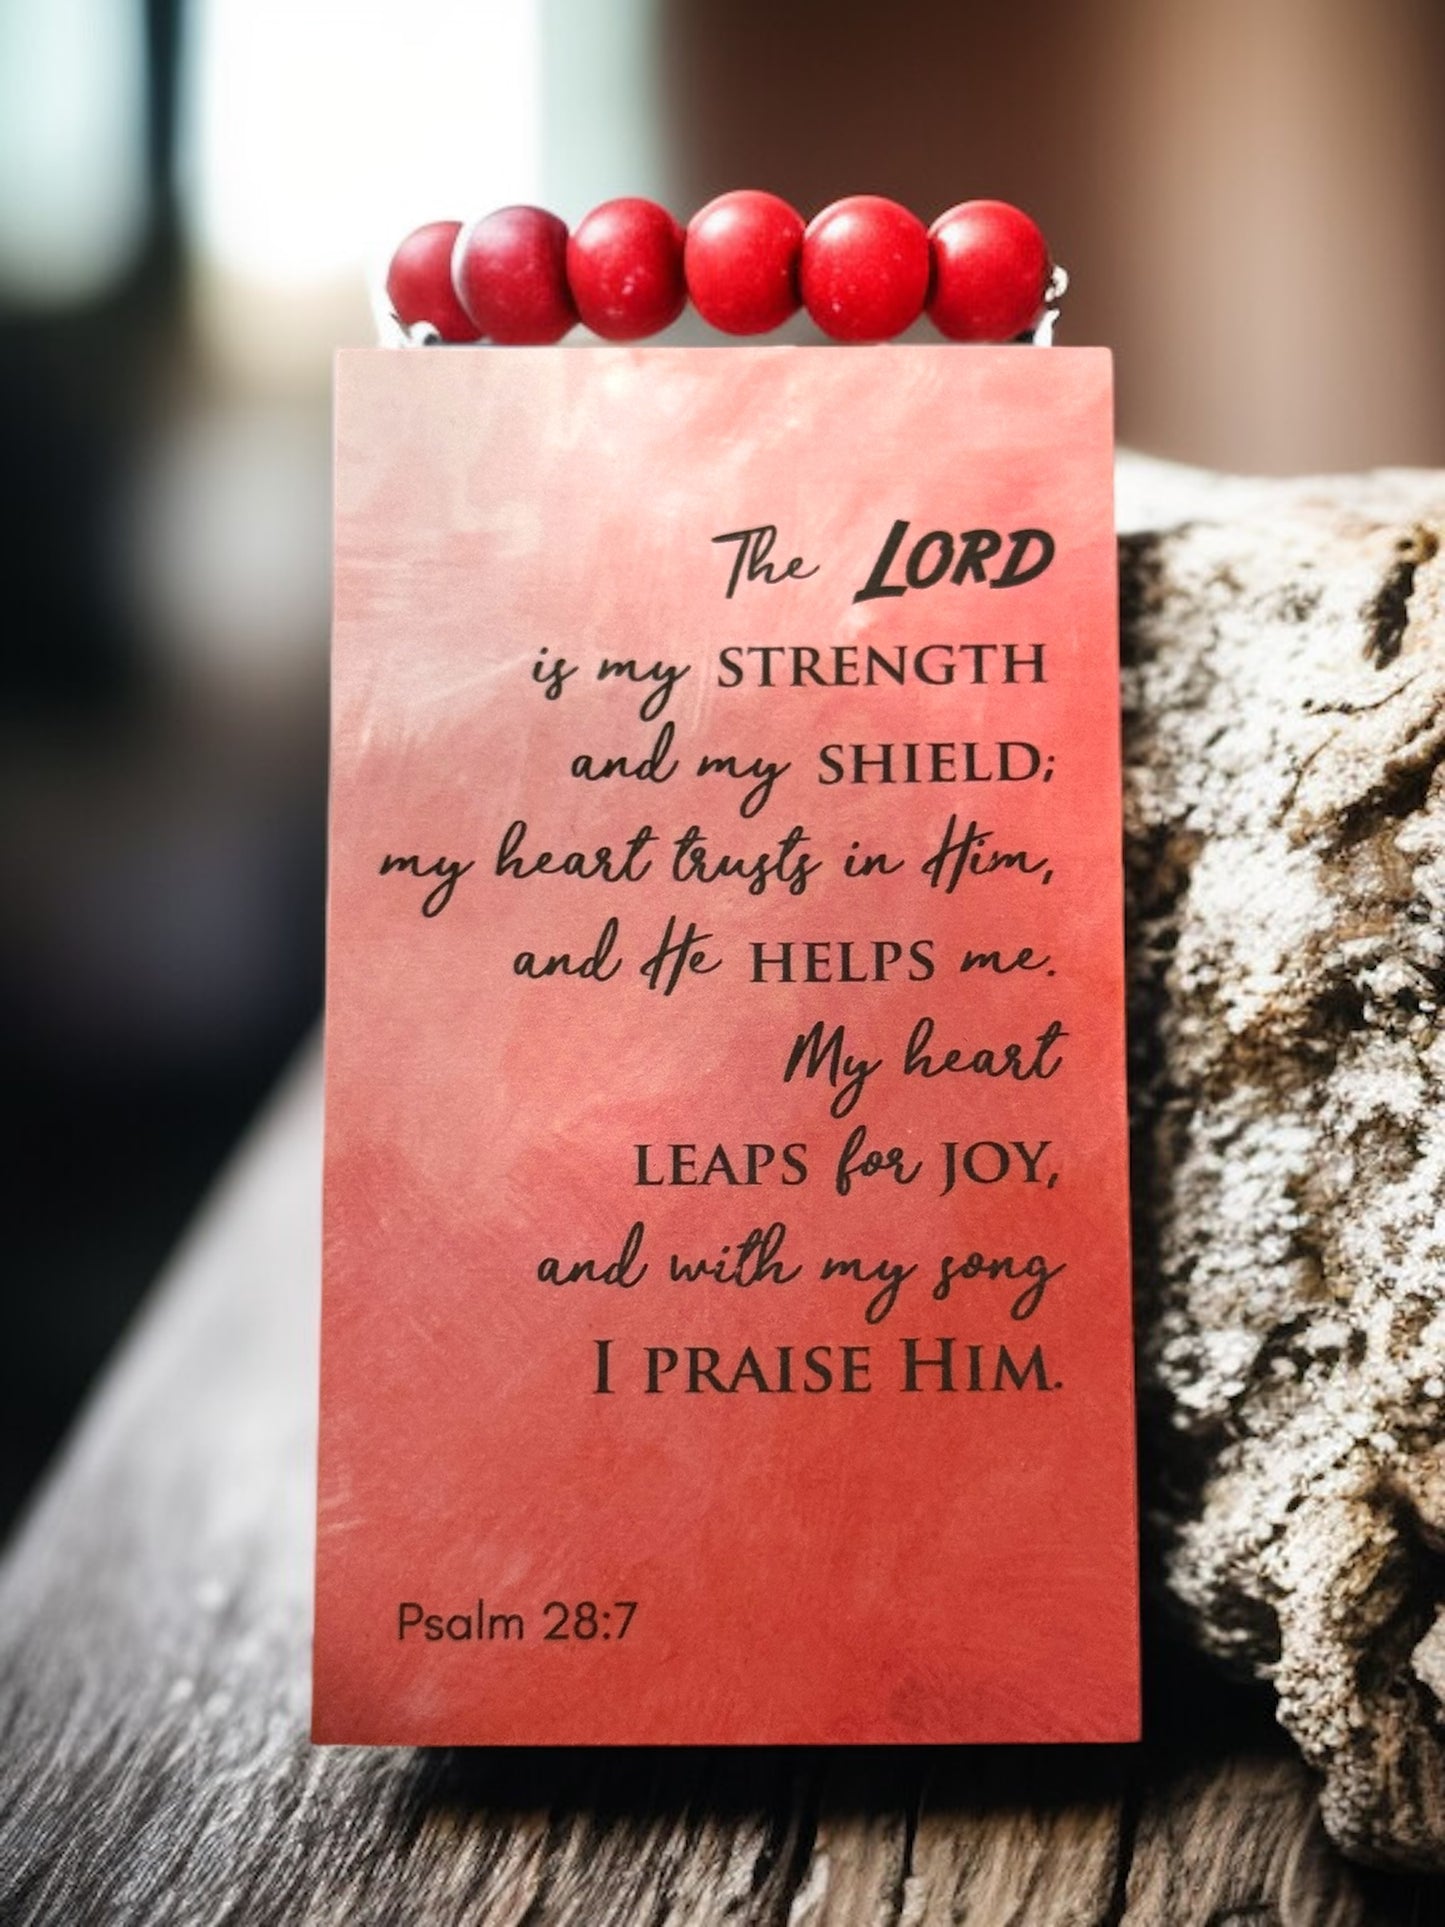 The LORD
is my STRENGTH
and my SHIELD;
my heart trusts in Him,
and He HELPS me.
My heart
LEAPS for JOY,
and with my song
I PRAISE HIM.
Psalm 28:7